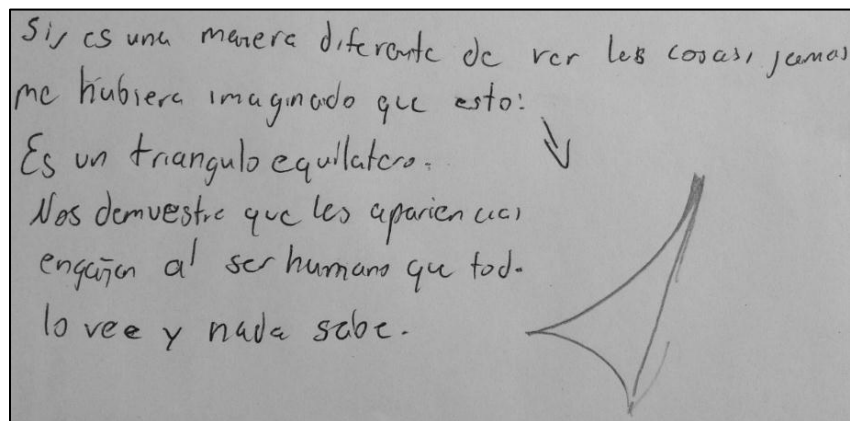 Si, es una manera diferente de ver las cosas, jamas
me hubiera imaginado que esto:
Es un triangulo equilatero.
Nos demuestra que las apariencias
engañan al ser humano que todo
lo vee y nada sabe.